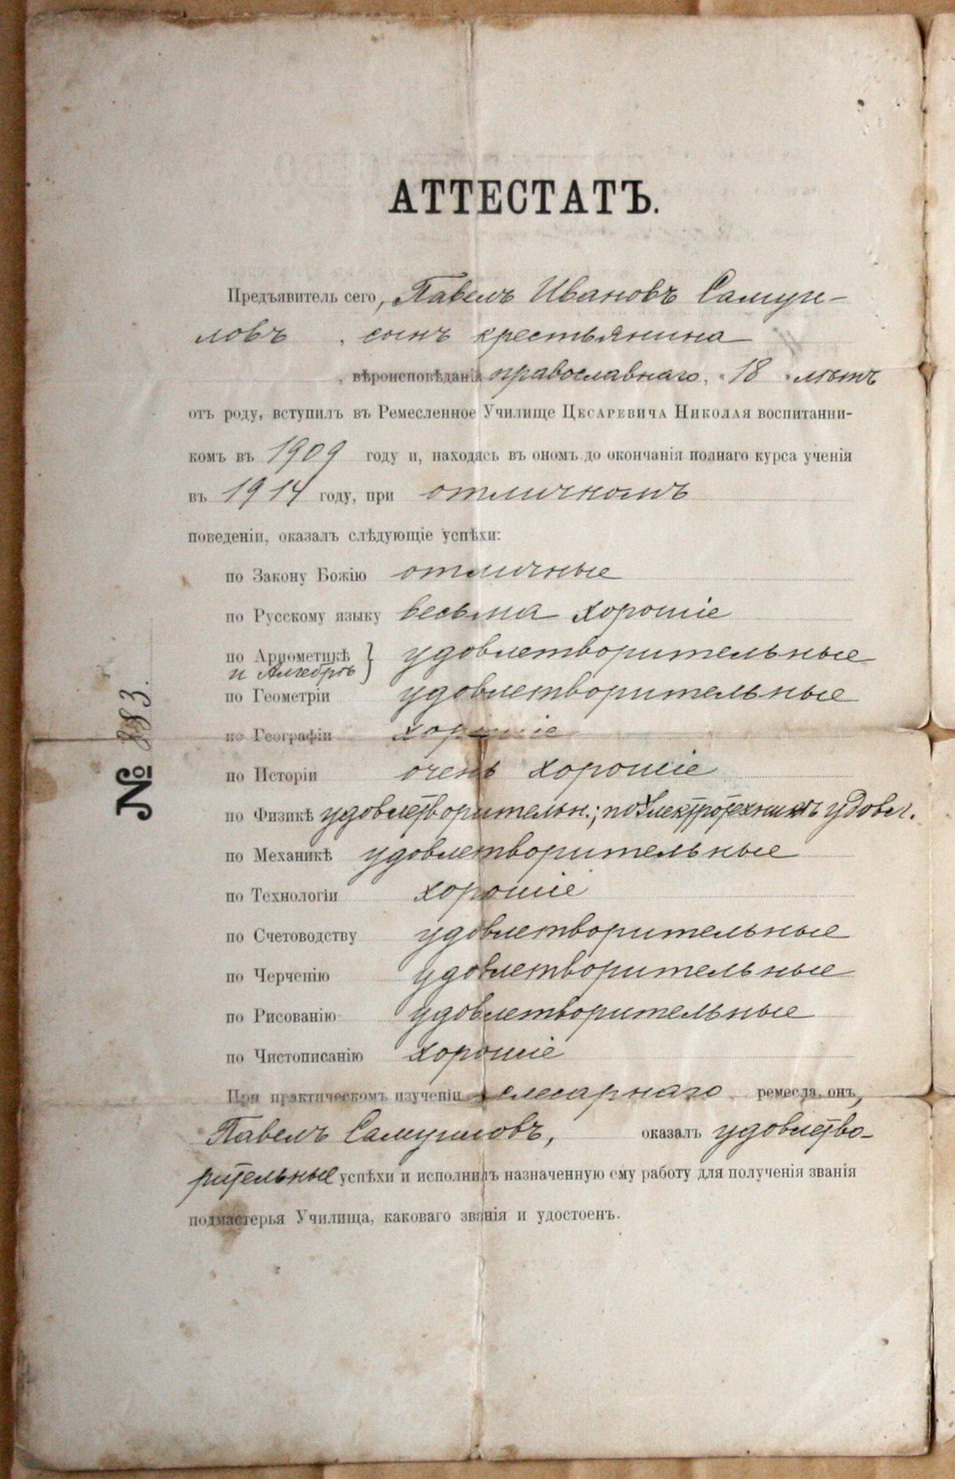 АТТЕСТАТЪ.
Предъявитель сего, Павелъ Ивановъ Самуи-
ловъ , сынъ крестьянина
, вѣроисповѣданія православнаго, 18 лѣтъ
отъ роду, вступилъ въ Ремесленное Училище Цесаревича Николая воспитанни-
комъ въ 1909 году и, находясь въ ономъ до окончанія полнаго курса ученія
въ 1914 году, при отличномъ
поведеніи, оказалъ слѣдующіе успѣхи:
по Закону Божію отличные
по Русскому языку весьма хорошіе
по Ариѳметикѣ } удовлетворительные
и Алгебрѣ
по Геометріи удовлетворительные
по Географіи хорошіе
по Исторіи очень хорошіе
по Физикѣ удовлетворительн.; по Электротехникѣ удовл.
по Механикѣ удовлетворительные
по Технологіи хорошіе
по Счетоводству удовлетворительные
по Черченію удовлетворительные
по Рисованію удовлетворительные
по Чистописанію хорошіе
При практическомъ изученіи слесарнаго ремесла онъ,
Павелъ Самуиловъ, оказалъ удовлетво-
рительные успѣхи и исполнилъ назначенную ему работу для полученія званія
подмастерья Училища, каковаго званія и удостоенъ.
№ 883.